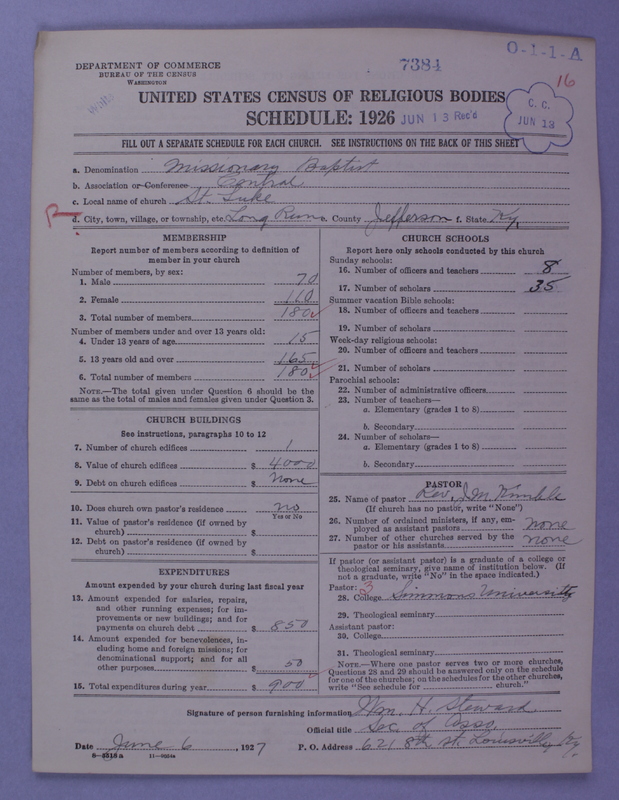 O-1-1-A
DEPARTMENT OF COMMERCE
BUREAU OF THE CENSUS
WASHINGTON
7384
16
C. C.
JUN 13
UNITED STATES CENSUS OF RELIGIOUS BODIES
SCHEDULE: 1926 JUN 13 Rec'd
FILL OUT A SEPARATE SCHEDULE FOR EACH CHURCH. SEE INSTRUCTIONS ON THE BACK OF THIS SHEET
a. Denomination Missionary Baptist
b. Association or Conference Central
c. Local name of church St. Luke
d. City, town, village, or township, etc. Long Run e. County Jefferson f. State Ky.
MEMBERSHIP
Report number of members according to definition of
member in your church
Number of members, by sex:
1. Male 70
2. Female 110
3. Total number of members 180
Number of members under and over 13 years old:
4. Under 13 years of age 15
5. 13 years old and over 165
6. Total number of members 180
NOTE.—The total given under Question 6 should be the
same as the total of males and females given under Question 3.
CHURCH BUILDINGS
See instructions, paragraphs 10 to 12
7. Number of church edifices 1
8. Value of church edifices $ 4000
9. Debt on church edifices $ None
10. Does church own pastor's residence no
Yes or No
11. Value of pastor's residence (if owned by
church) $
12. Debt on pastor's residence (if owned by
church) $
EXPENDITURES
Amount expended by your church during last fiscal year
13. Amount expended for salaries, repairs,
and other running expenses; for im-
provements or new buildings; and for
payments on church debt $ 850
14. Amount expended for benevolences, in-
cluding home and foreign missions; for
denominational support; and for all
other purposes $ 50
15. Total expenditures during year $ 900
CHURCH SCHOOLS
Report here only schools conducted by this church
Sunday schools:
16. Number of officers and teachers 8
17. Number of scholars 35
Summer vacation Bible schools:
18. Number of officers and teachers
19. Number of scholars
Week-day religious schools:
20. Number of officers and teachers
21. Number of scholars
Parochial schools:
22. Number of administrative officers
23. Number of teachers—
a. Elementary (grades 1 to 8)
b. Secondary
24. Number of scholars—
a. Elementary (grades 1 to 8)
b. Secondary
PASTOR
25. Name of pastor Rev. J.M. Kimble
(If church has no pastor, write "None")
26. Number of ordained ministers, if any, em-
ployed as assistant pastors none
27. Number of other churches served by the
pastor or his assistants none
If pastor (or assistant pastor) is a graduate of a college or
theological seminary, give name of institution below. (If
not a graduate, write "No" in the space indicated.)
Pastor: 3
28. College Simmons University
29. Theological seminary
Assistant pastor:
30. College
31. Theological seminary
NOTE.—Where one pastor serves two or more churches,
Questions 28 and 29 should be answered only on the schedule
for one of the churches; on the schedules for the other churches,
write "See schedule for church."
Signature of person furnishing information Wm. H. Steward
Official title Sec. of Asso.
Date June 6, 1927 P. O. Address 621 8th St. Louisville, Ky.
11—9084a